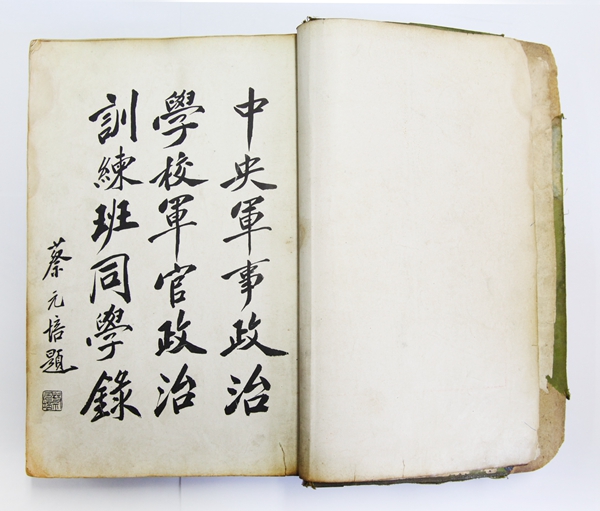 中央軍事政治
學校軍官政治
訓練班同學錄
蔡元培題